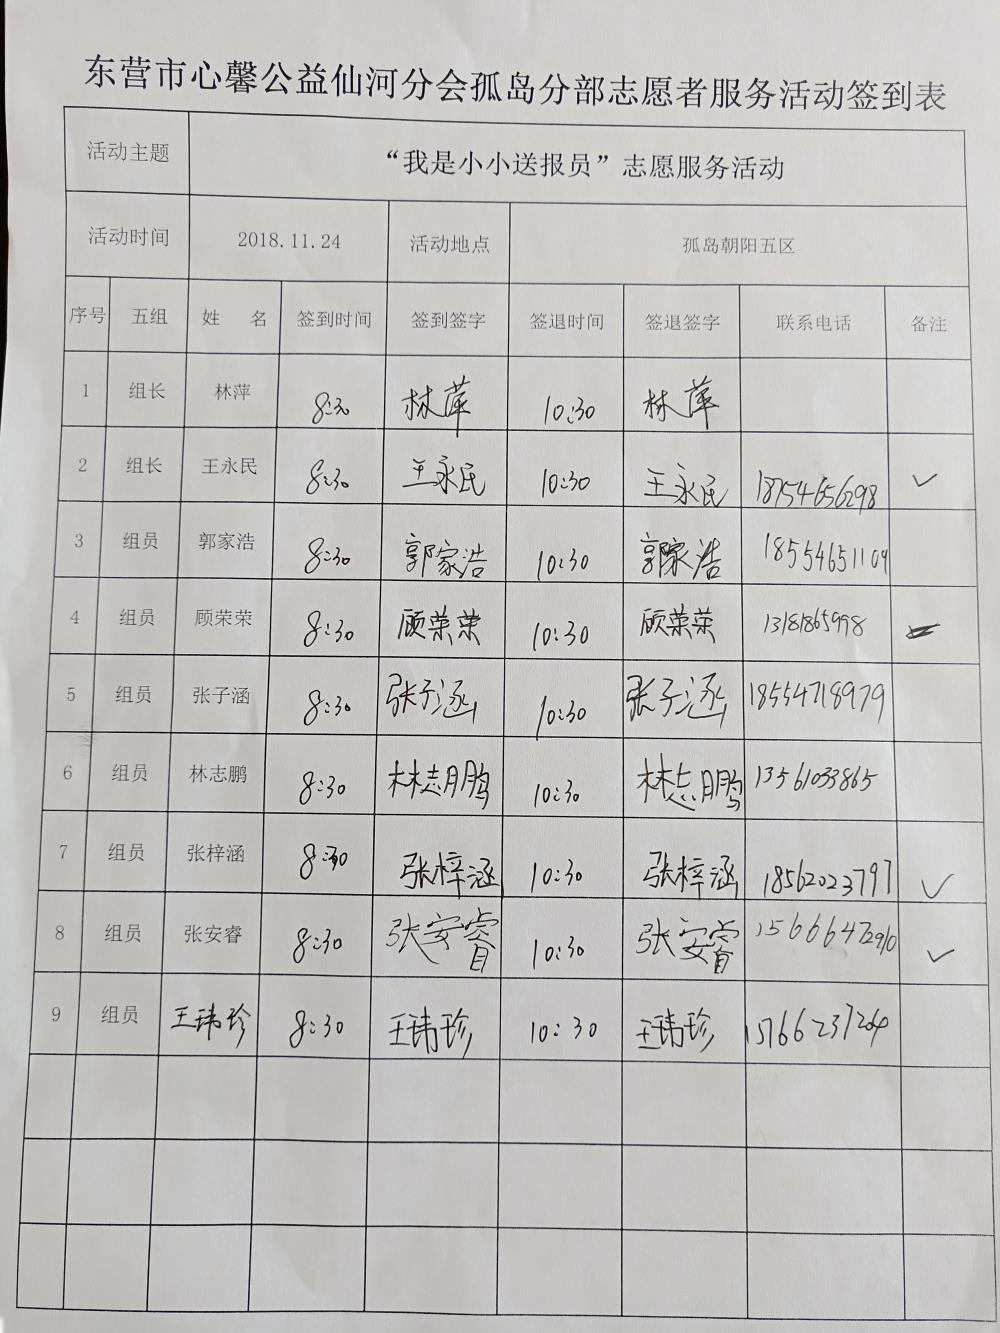 东营市心馨公益仙河分会孤岛分部志愿者服务活动签到表
活动主题 “我是小小送报员”志愿服务活动
活动时间 2018.11.24 活动地点 孤岛朝阳五区
序号 五组 姓 名 签到时间 签到签字 签退时间 签退签字 联系电话 备注
1 组长 林萍 8:30 林萍 10:30 林萍
2 组长 王永民 8:30 王永民 10:30 王永民 18754656298 ✓
3 组员 郭家浩 8:30 郭家浩 10:30 郭家浩 18554651109
4 组员 顾荣荣 8:30 顾荣荣 10:30 顾荣荣 13181865998
5 组员 张子涵 8:30 张子涵 10:30 张子涵 18554718979
6 组员 林志鹏 8:30 林志鹏 10:30 林志鹏 13561033865
7 组员 张梓涵 8:30 张梓涵 10:30 张梓涵 18562023797 ✓
8 组员 张安睿 8:30 张安睿 10:30 张安睿 15666472910 ✓
9 组员 王玮珍 8:30 王玮珍 10:30 王玮珍 15766237264